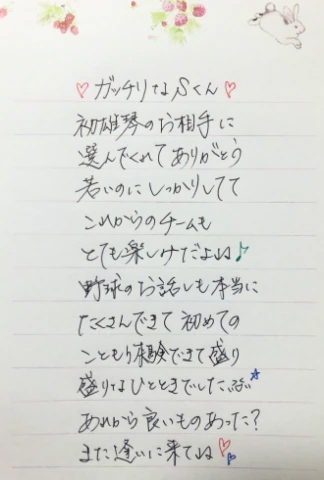 ♡ガッチリなSくん♡
初雄琴のお相手に
選んでくれてありがとう
若いのにしっかりしてて
これからのチームも
とても楽しみだよね♪
野球のお話しも本当に
たくさんできて初めての
ことも体験できて盛り
盛りなひとときでした
あれから良いものあった?
また逢いに来てね♡